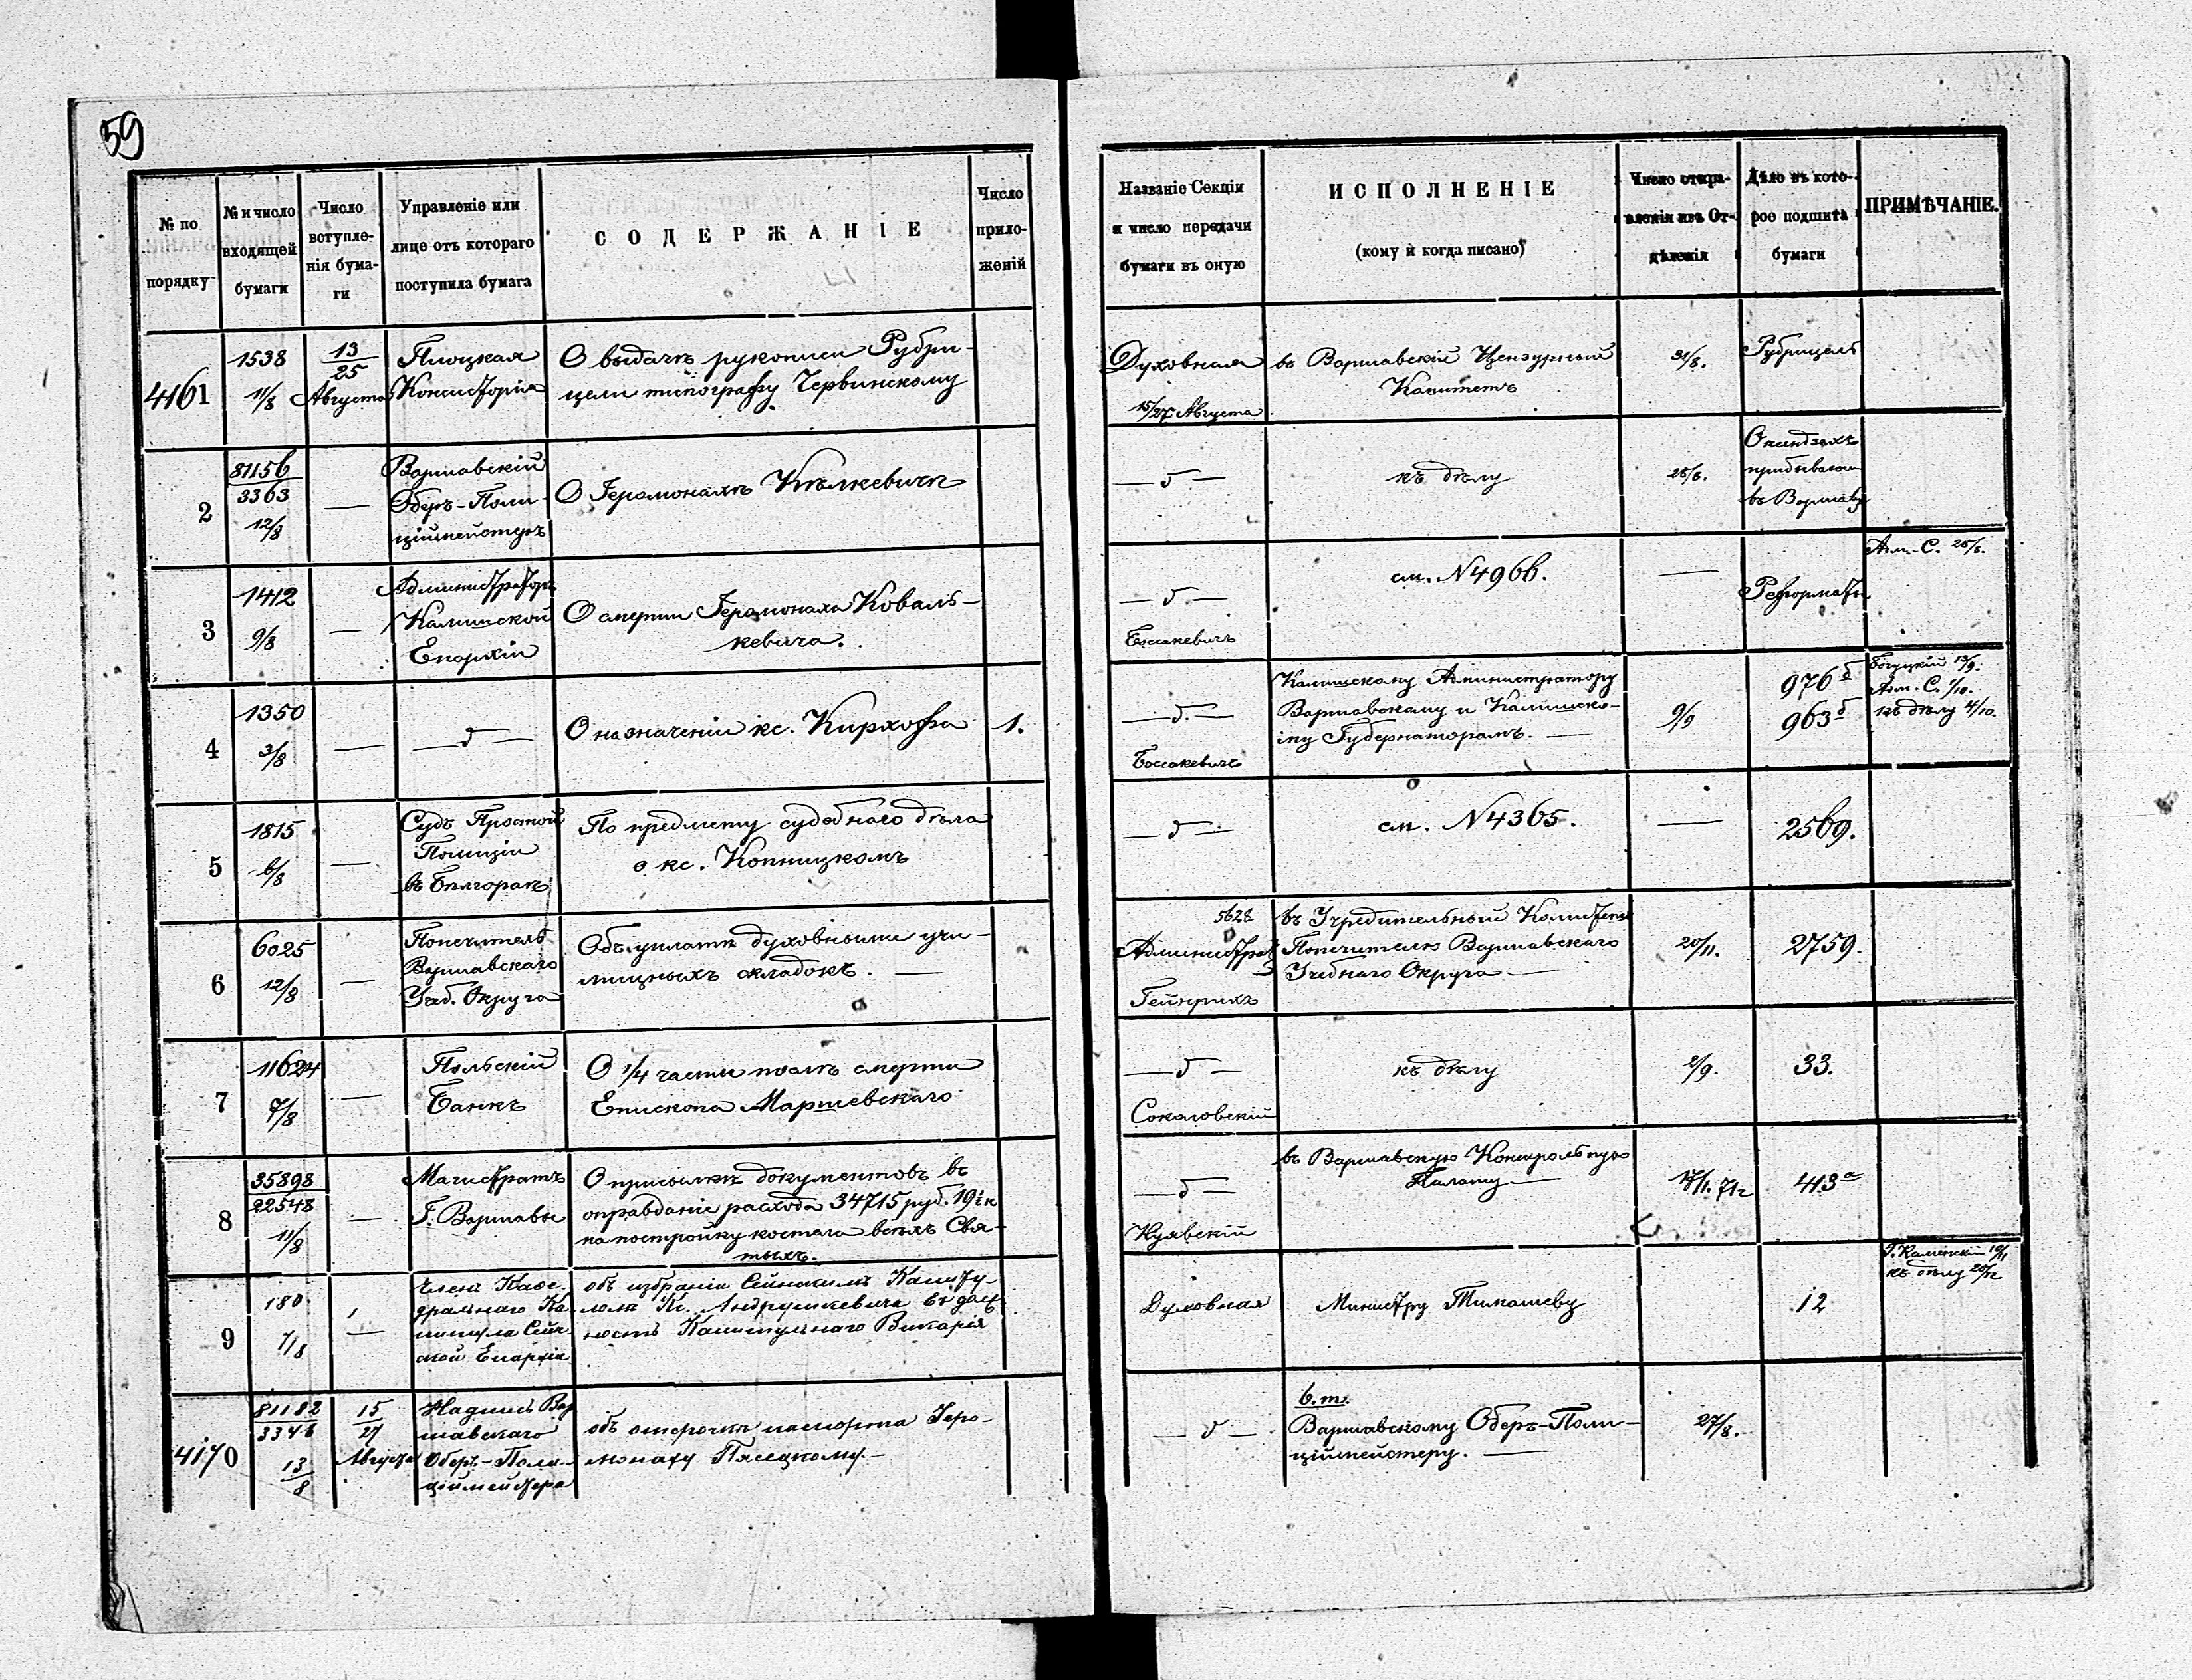 59
№ по порядку
№ и число входящей бумаги
Число вступле-нія бума-ги
Управленіе или лице отъ котораго поступила бумага
СОДЕРЖАНІЕ
Число прило-женій
Названіе Секціи и число передачи бумаги въ оную
ИСПОЛНЕНІЕ
(кому и когда писано)
Число отпра-вленія изъ От-дѣленія
Дѣло въ кото-рое подшита бумаги
ПРИМѢЧАНІЕ.
4161
1538
11/8
13/25
Августа
Плоцкая
Консисторія
О выдачѣ рукописи Рубри-
цели типографу Червинскому
Духовная
15/27 Августа
въ Варшавскій Цензурный
Комитетъ
31/8.
Рубрицель
2
81156
3363
12/8
—
Варшавскій
Оберъ-Поли-
ціймейстеръ
О Іеромонахѣ
— д —
къ дѣлу
О ксендзахъ
въ Варшаву
3
1412
9/8
—
Администраторъ
Калишской
Епархіи
О смерти Іеромонаха Коваль-
кевича.
— д —
см. № 4966.
—
Реформаты
4
1350
3/8
—
— д —
О назначеніи кс. Кирхофа
1.
— д. —
Боссакевичъ
Калишскому Администратору
Варшавскому и Калишско-
му Губернаторамъ. —
9/9
976 б
963 б
Богуцкій 13/9.
Адм. С. 1/10.
къ дѣлу 4/10.
5
1815
6/8
—
Судъ Простой
Полиціи
въ Бѣлгораѣ
По предмету судебнаго дѣла
о кс. Копницкомъ
— д —
см. № 4365.
—
2569.
6
6025
12/8
—
Попечитель
Варшавскаго
Учеб. Округа
Объ уплатѣ духовными учи-
лищныхъ складокъ. —
5628
Гейнрихъ
въ Учредительный Комитетъ
Попечителю Варшавскаго
Учебнаго Округа —
20/11.
2759.
7
11624
7/8
—
Польскій
Банкъ
О 1/4 части послѣ смерти
Епископа Маршевскаго
— д —
Соколовскій
къ дѣлу
2/9.
33.
8
35898
22548
11/8
—
Магистратъ
Г. Варшавы
О присылкѣ документовъ въ
оправданіе расхода 34715 руб. 19½ к
на постройку костела всѣхъ Свя-
тыхъ.
— д —
Куявскій
въ Варшавскую Контрольную
Палату —
17/11. 71 г
413 а
9
180
7/8
—
Членъ Каѳе-
дральнаго Ка-
питула Сейн-
ской Епархіи
объ избраніи Сейнскимъ Капиту-
ломъ Кс. Андрушкевича въ долж
ность Капитульнаго Викарія
Духовная
Министру Тимашеву
12
къ дѣлу 20/12
4170
81182
3346
13/8
15/27
Августа
Надпись Вар
шавскаго
Оберъ-Поли-
ціймейстера
объ отсрочкѣ паспорта Іеро-
монаху Пясецкому. —
— д —
в. т.
Варшавскому Оберъ-Поли-
ціймейстеру. —
27/8.